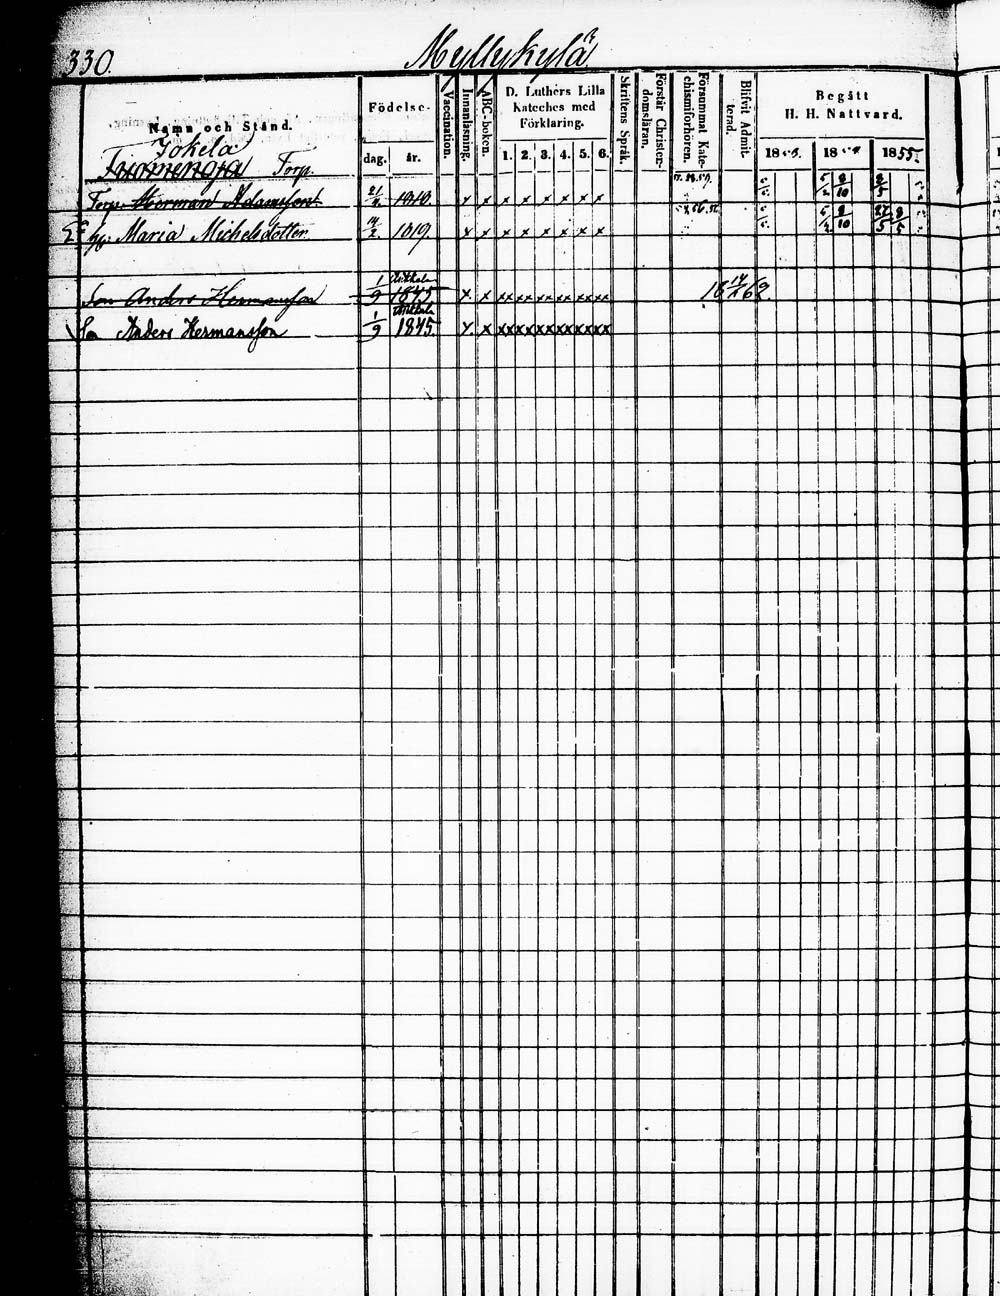 330.
Myllykylä
Namn och Stånd.
Födelse-
dag. år.
Vaccination.
Innanläsning.
ABC-boken.
D. Luthers Lilla
Kateches med
Förklaring.
1. 2. 3. 4. 5. 6.
Skriftens Språk.
Förstår Christen-
domsläran.
Försummat Kate-
chismiförhören.
Blifvit Admit-
terad.
Begått
H. H. Nattvard.
18 18 1855.
Jokela
Torp.
Torp. Herman Adamsson 21 1810. x x x x x x x x
Maria Michelsdotter 14/2. 1819. x x x x x x x x
Son Anders Hermansson 1/9 1845 x x xx xx xx xx xx xx 18 14 62
So Anders Hermansson 1/9 1845. x x xx xx xx xx xx xx
5 8/10 8/5
5 8/10 27/5 8/5